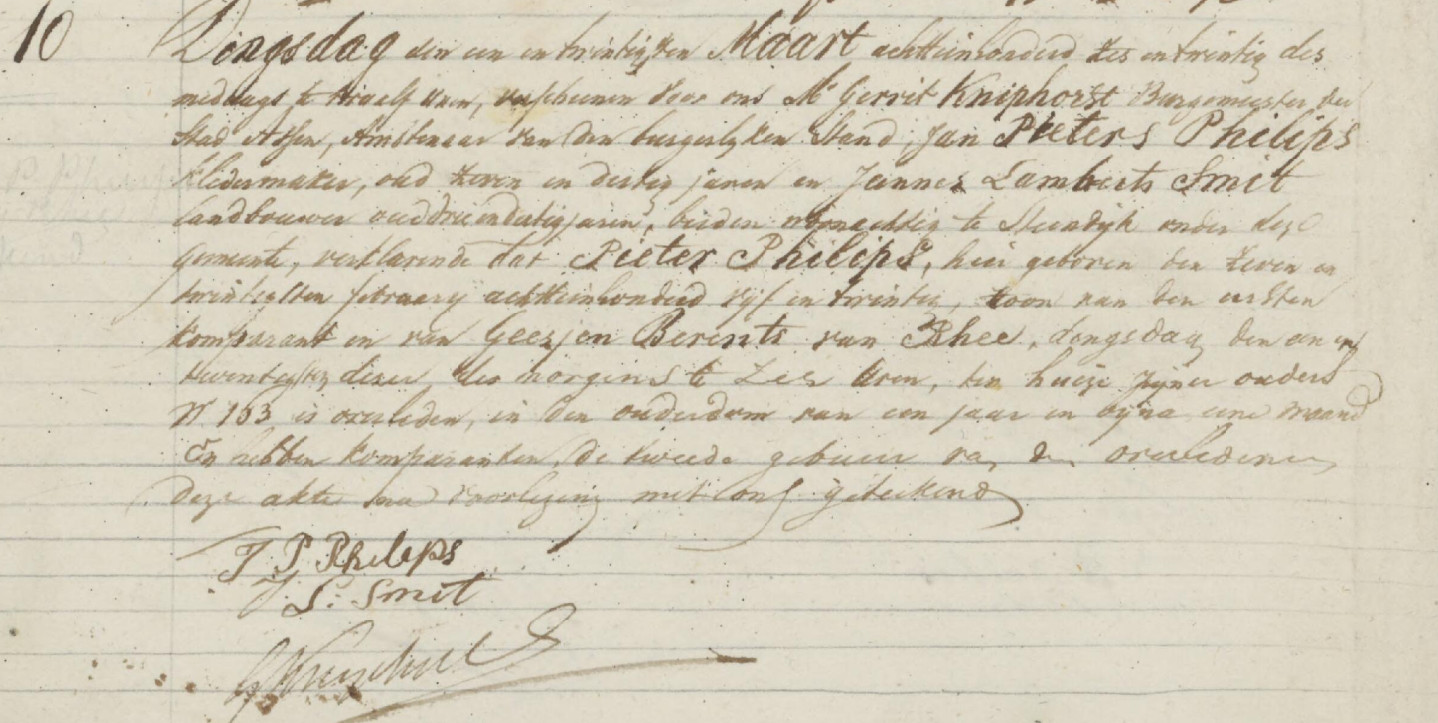 10 Dingsdag den een en twintigsten Maart achttienhonderd zes en twintig des
middags te twaalf uren, verscheenen voor ons Mr Gerrit Kniphorst Burgemeester der
Stad Assen, Ambtenaar van den burgerlyken Stand, Jan Pieters Philips
kledermaker, oud zeven en dertig jaren en Jannes Lamberts Smit
landbouwer oud drie en dertig jaren, beiden woonachtig te Steendyk onder deze
gemeente, verklarende dat Pieter Philips, hier geboren den zeven en
twintigsten february achttienhonderd vyf en twintig, zoon van den eersten
komparant en van Geesjen Berents van Rhee, dingsdag den een en
twentigsten dezer, des morgens te zes uren, ten huize zyner ouders
No 103 is overleden, in den ouderdom van een jaar en byna eene maand
En hebben komparanten, de tweede gebuur van den overledene,
deze akte na voorlezing met ons geteekend
J P Philips
J. L. Smit
G Kniphorst